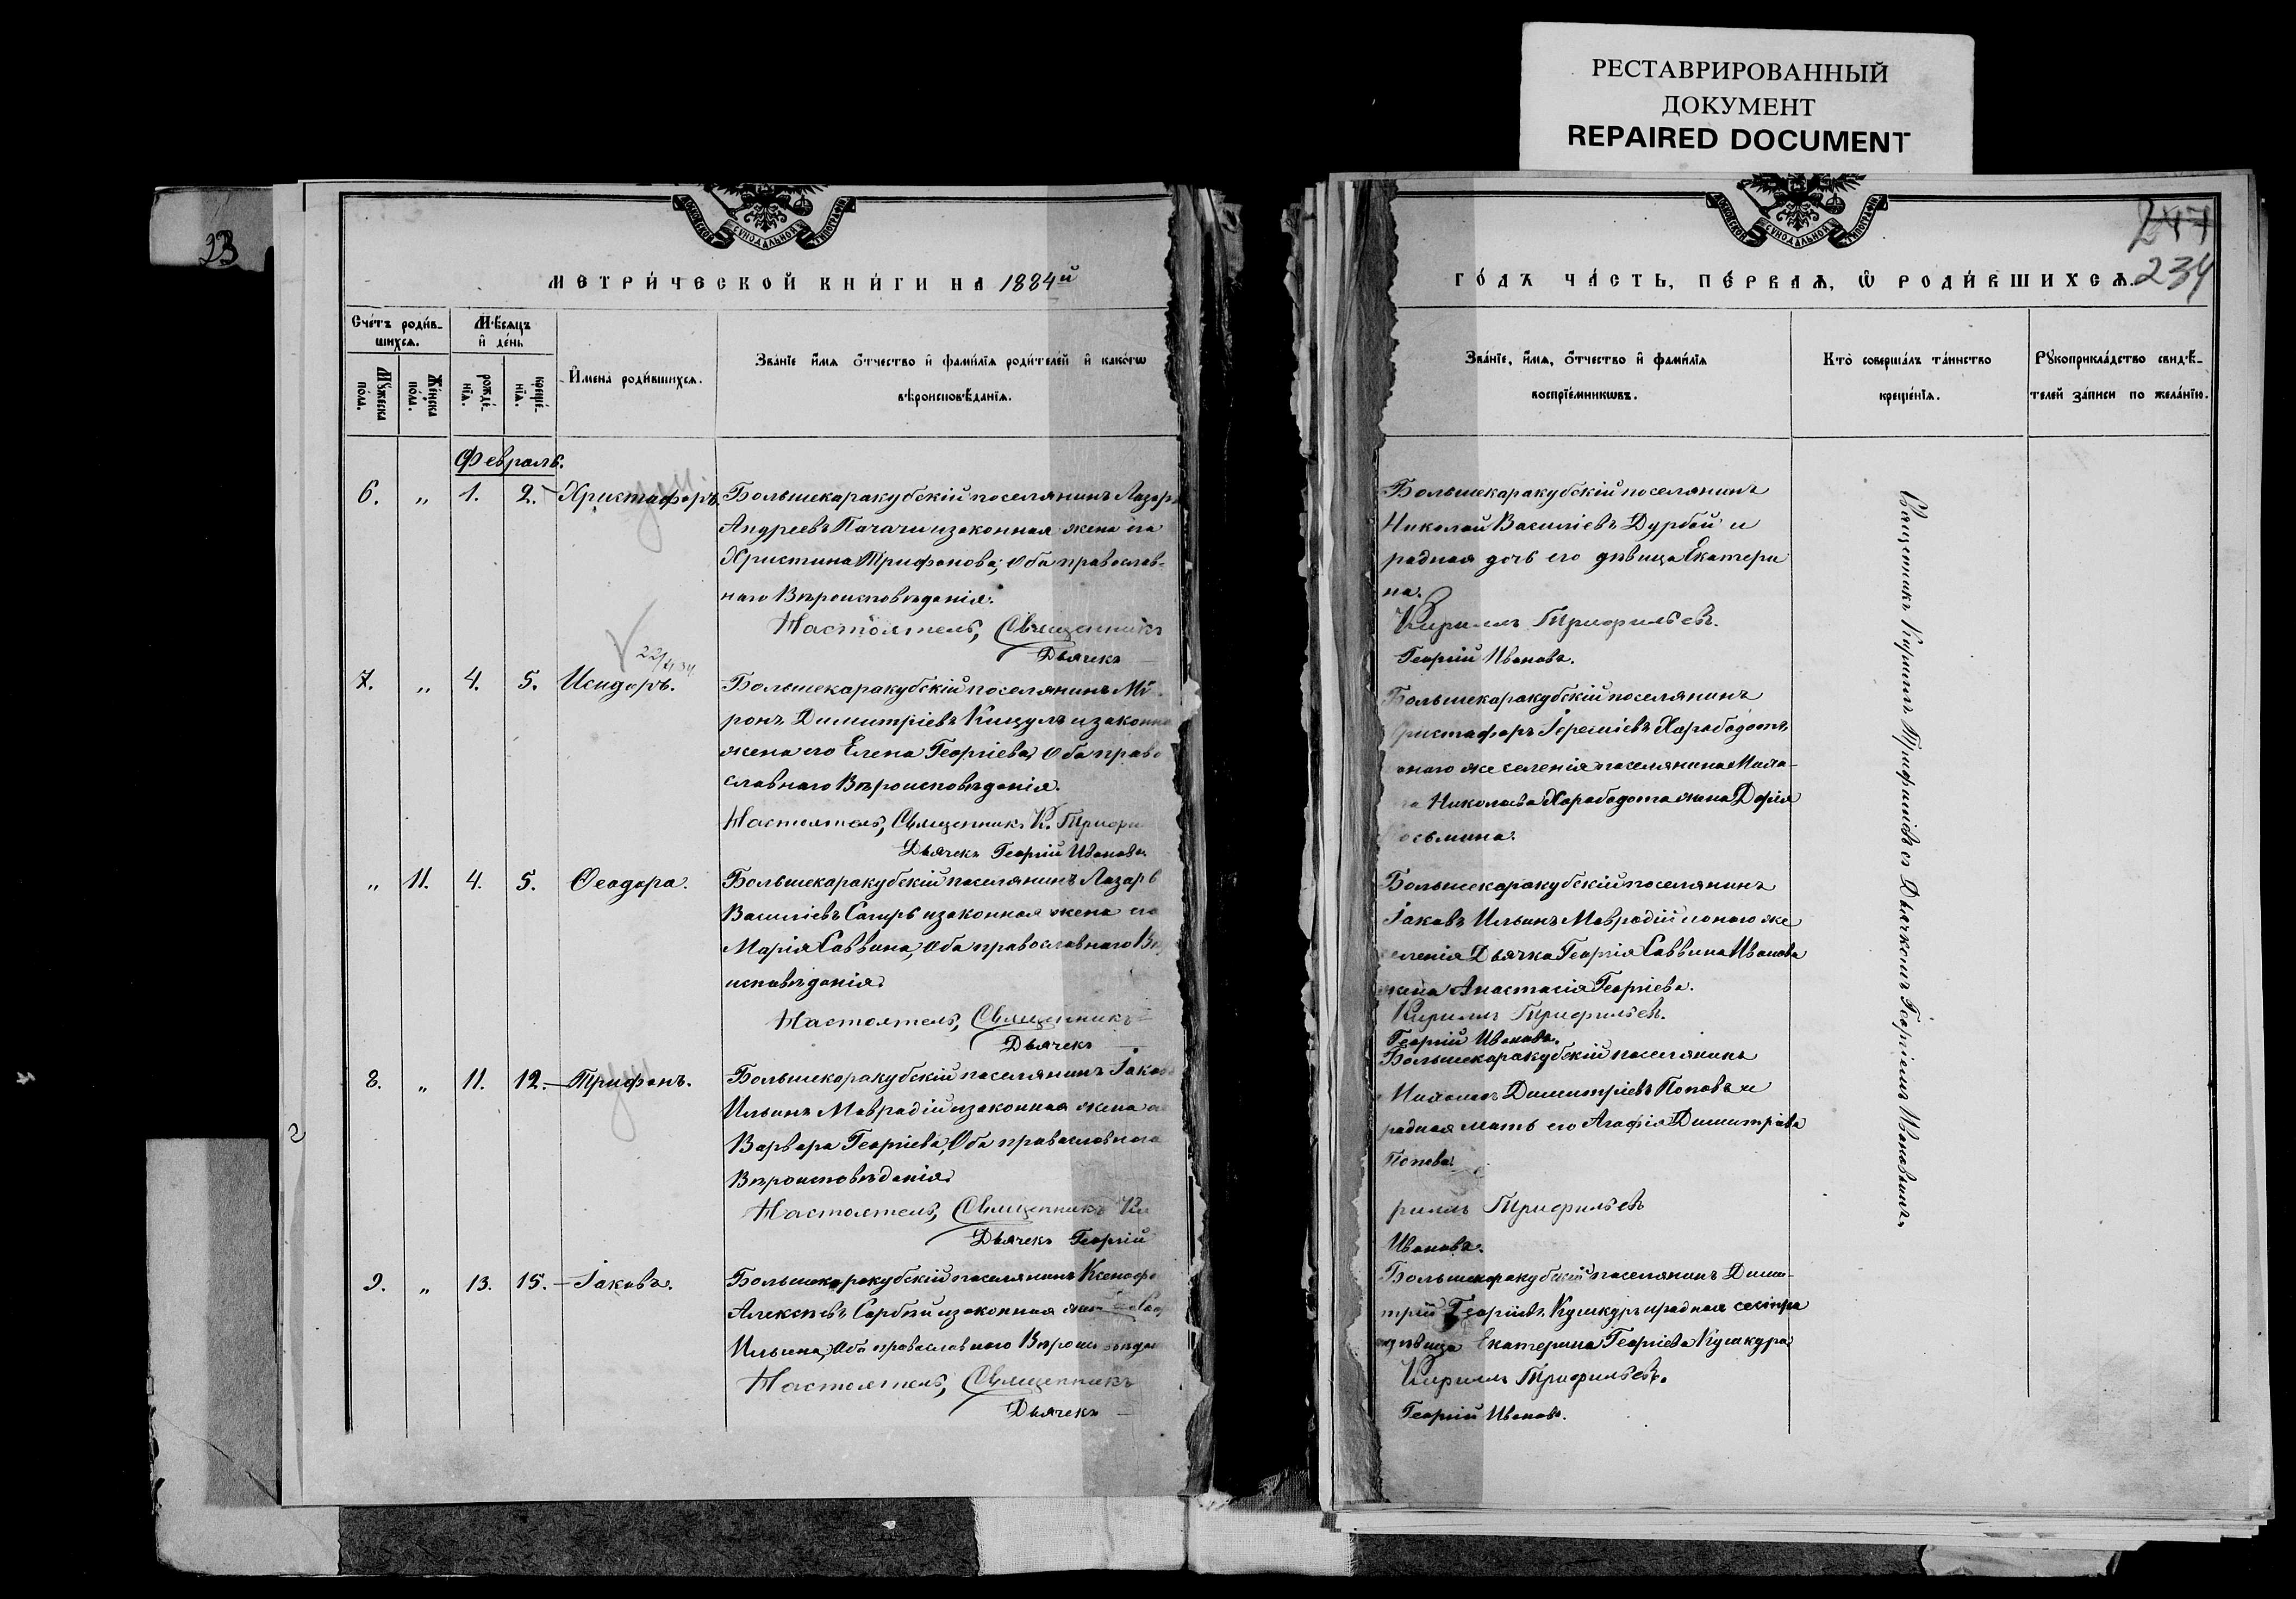 РЕСТАВРИРОВАННЫЙ
ДОКУМЕНТ
REPAIRED DOCUMENT
23
МОСКОВСКОЙ СѴНОДАЛЬНОЙ ТИПОГРАФІИ
МЕТРИ́ЧЕСКОЙ КНИ́ГИ НА 1884й
Сче́тъ роди́в-
шихся.
Мѣ́сяцъ
и҆ де́нь
Му́жеска
по́ла.
Же́нска
по́ла.
рожде́-
нїя.
креще́-
нїя.
И҆мена̀ роди́вшихся.
Зва́нїе и҆́мя ѻ҆́тчество и҆ фами́лїя роди́телей и҆ како́гѡ
вѣроисповѣ́данїя.
Февраль.
6. „ 1. 2. Христофоръ. Большекаракубскій поселянинъ Лазарь
Андреевъ Пачачи и законная жена его
Христина Трифонова; Оба православ-
наго Вѣроисповѣданія.
Настоятель, Священникъ
Дьячекъ
7. „ 4. 5. Исидоръ. Большекаракубскій поселянинъ Ми-
ронъ Димитріевъ Кицулъ и законна
жена его Елена Георгіева, Оба право
славнаго Вѣроисповѣданія.
Настоятель, Священникъ К. Трифи
Дьячекъ Георгій Ивановъ
„ 11. 4. 5. Ѳеодора. Большекаракубскій поселянинъ Лазарь
Василіевъ Сагирь и законная жена его
Марія Саввина, Оба православнаго Вѣ
исповѣданія.
Настоятель, Священникъ
Дьячекъ
8. „ 11. 12. Трифонъ. Большекаракубскій поселянинъ Іаковъ
Ильинъ Мавродій и законная жена его
Варвара Георгіева, Оба православнаго
Вѣроисповѣданія.
Настоятель, Священникъ Ки
Дьячекъ Георгій
9. „ 13. 15. Іаковъ. Большекаракубскій поселянинъ Ксенофо
Алексѣевъ Сарбей и законная
Ильина, Оба православнаго
Настоятель, Священникъ
Дьячекъ
МОСКОВСКОЙ СѴНОДАЛЬНОЙ ТИПОГРАФІИ
247
234
ГО́ДЪ ЧА́СТЬ, ПЕ́РВАЯ, Ѡ҆ РОДИ́ВШИХСЯ.
Зва́нїе, и҆́мя, ѻ҆́тчество и҆ фами́лїя
воспрїе́мникѡвъ.
Кто̀ соверша́лъ та́инство
креще́нїя.
Рꙋкоприкла́дство свидѣ́-
телей за́писи по жела́нїю.
Большекаракубскій поселянинъ
Николай Василіевъ Дурбай и
родная дочь его дѣвица Екатери
на.
Кириллъ Трифильевъ.
Георгій Ивановъ.
Большекаракубскій поселянинъ
Христофоръ Іереміевъ Харабадотъ
онаго же селенія поселянина Миха-
Николаева Харабадота жена Дофія
Косьмина.
Большекаракубскій поселянинъ
Іаковъ Ильинъ Мавродій и онаго же
селенія Дьячка Георгія Саввина Иванова
жена Анастасія Георгіева.
Кириллъ Трифильевъ.
Георгій Ивановъ.
Большекаракубскій поселянинъ
Михаилъ Димитріевъ Поповъ и
родная мать его Агафія Димитріева
Попова.
риллъ Трифильевъ
Ивановъ.
Большекаракубскій поселянинъ Дими-
трій Георгіевъ Кушкуръ и родная сестра
дѣвица Екатерина Георгіева Кушкура
Кириллъ Трифильевъ.
Георгій Ивановъ.
Священникъ Кириллъ Трифильевъ съ Дьячкомъ Георгіемъ Ивановымъ.